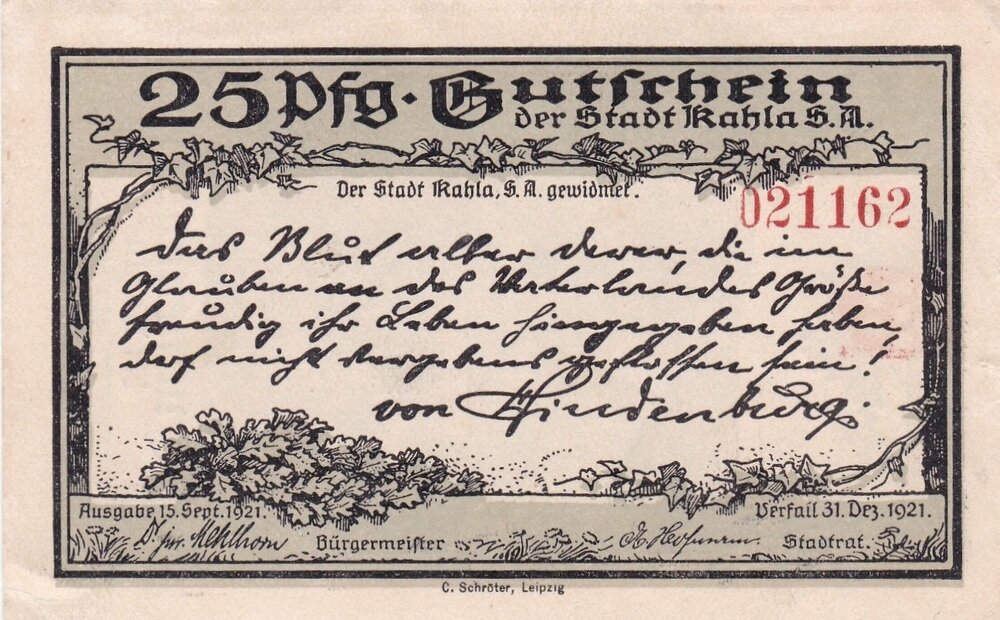 25 Pfg. Gutschein
der Stadt Kahla S.A.
Der Stadt Kahla, S.A. gewidmet.
021162
Das Blut aller derer, die im
Glauben an des Vaterlandes Größe
freudig ihr Leben hingegeben haben,
darf nicht vergebens geflossen sein!
von Hindenburg.
Ausgabe 15. Sept. 1921.
Verfall 31. Dez. 1921.
Dr jur. Mehlhorn Bürgermeister
Stadtrat.
C. Schröter, Leipzig